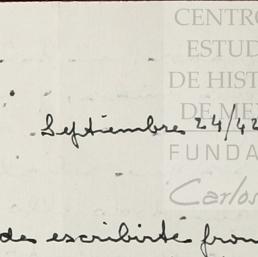 CENTRO
ESTUD
DE HIST
DE ME
FUNDA
Carlos
Septiembre 24/42
de escribirte fron